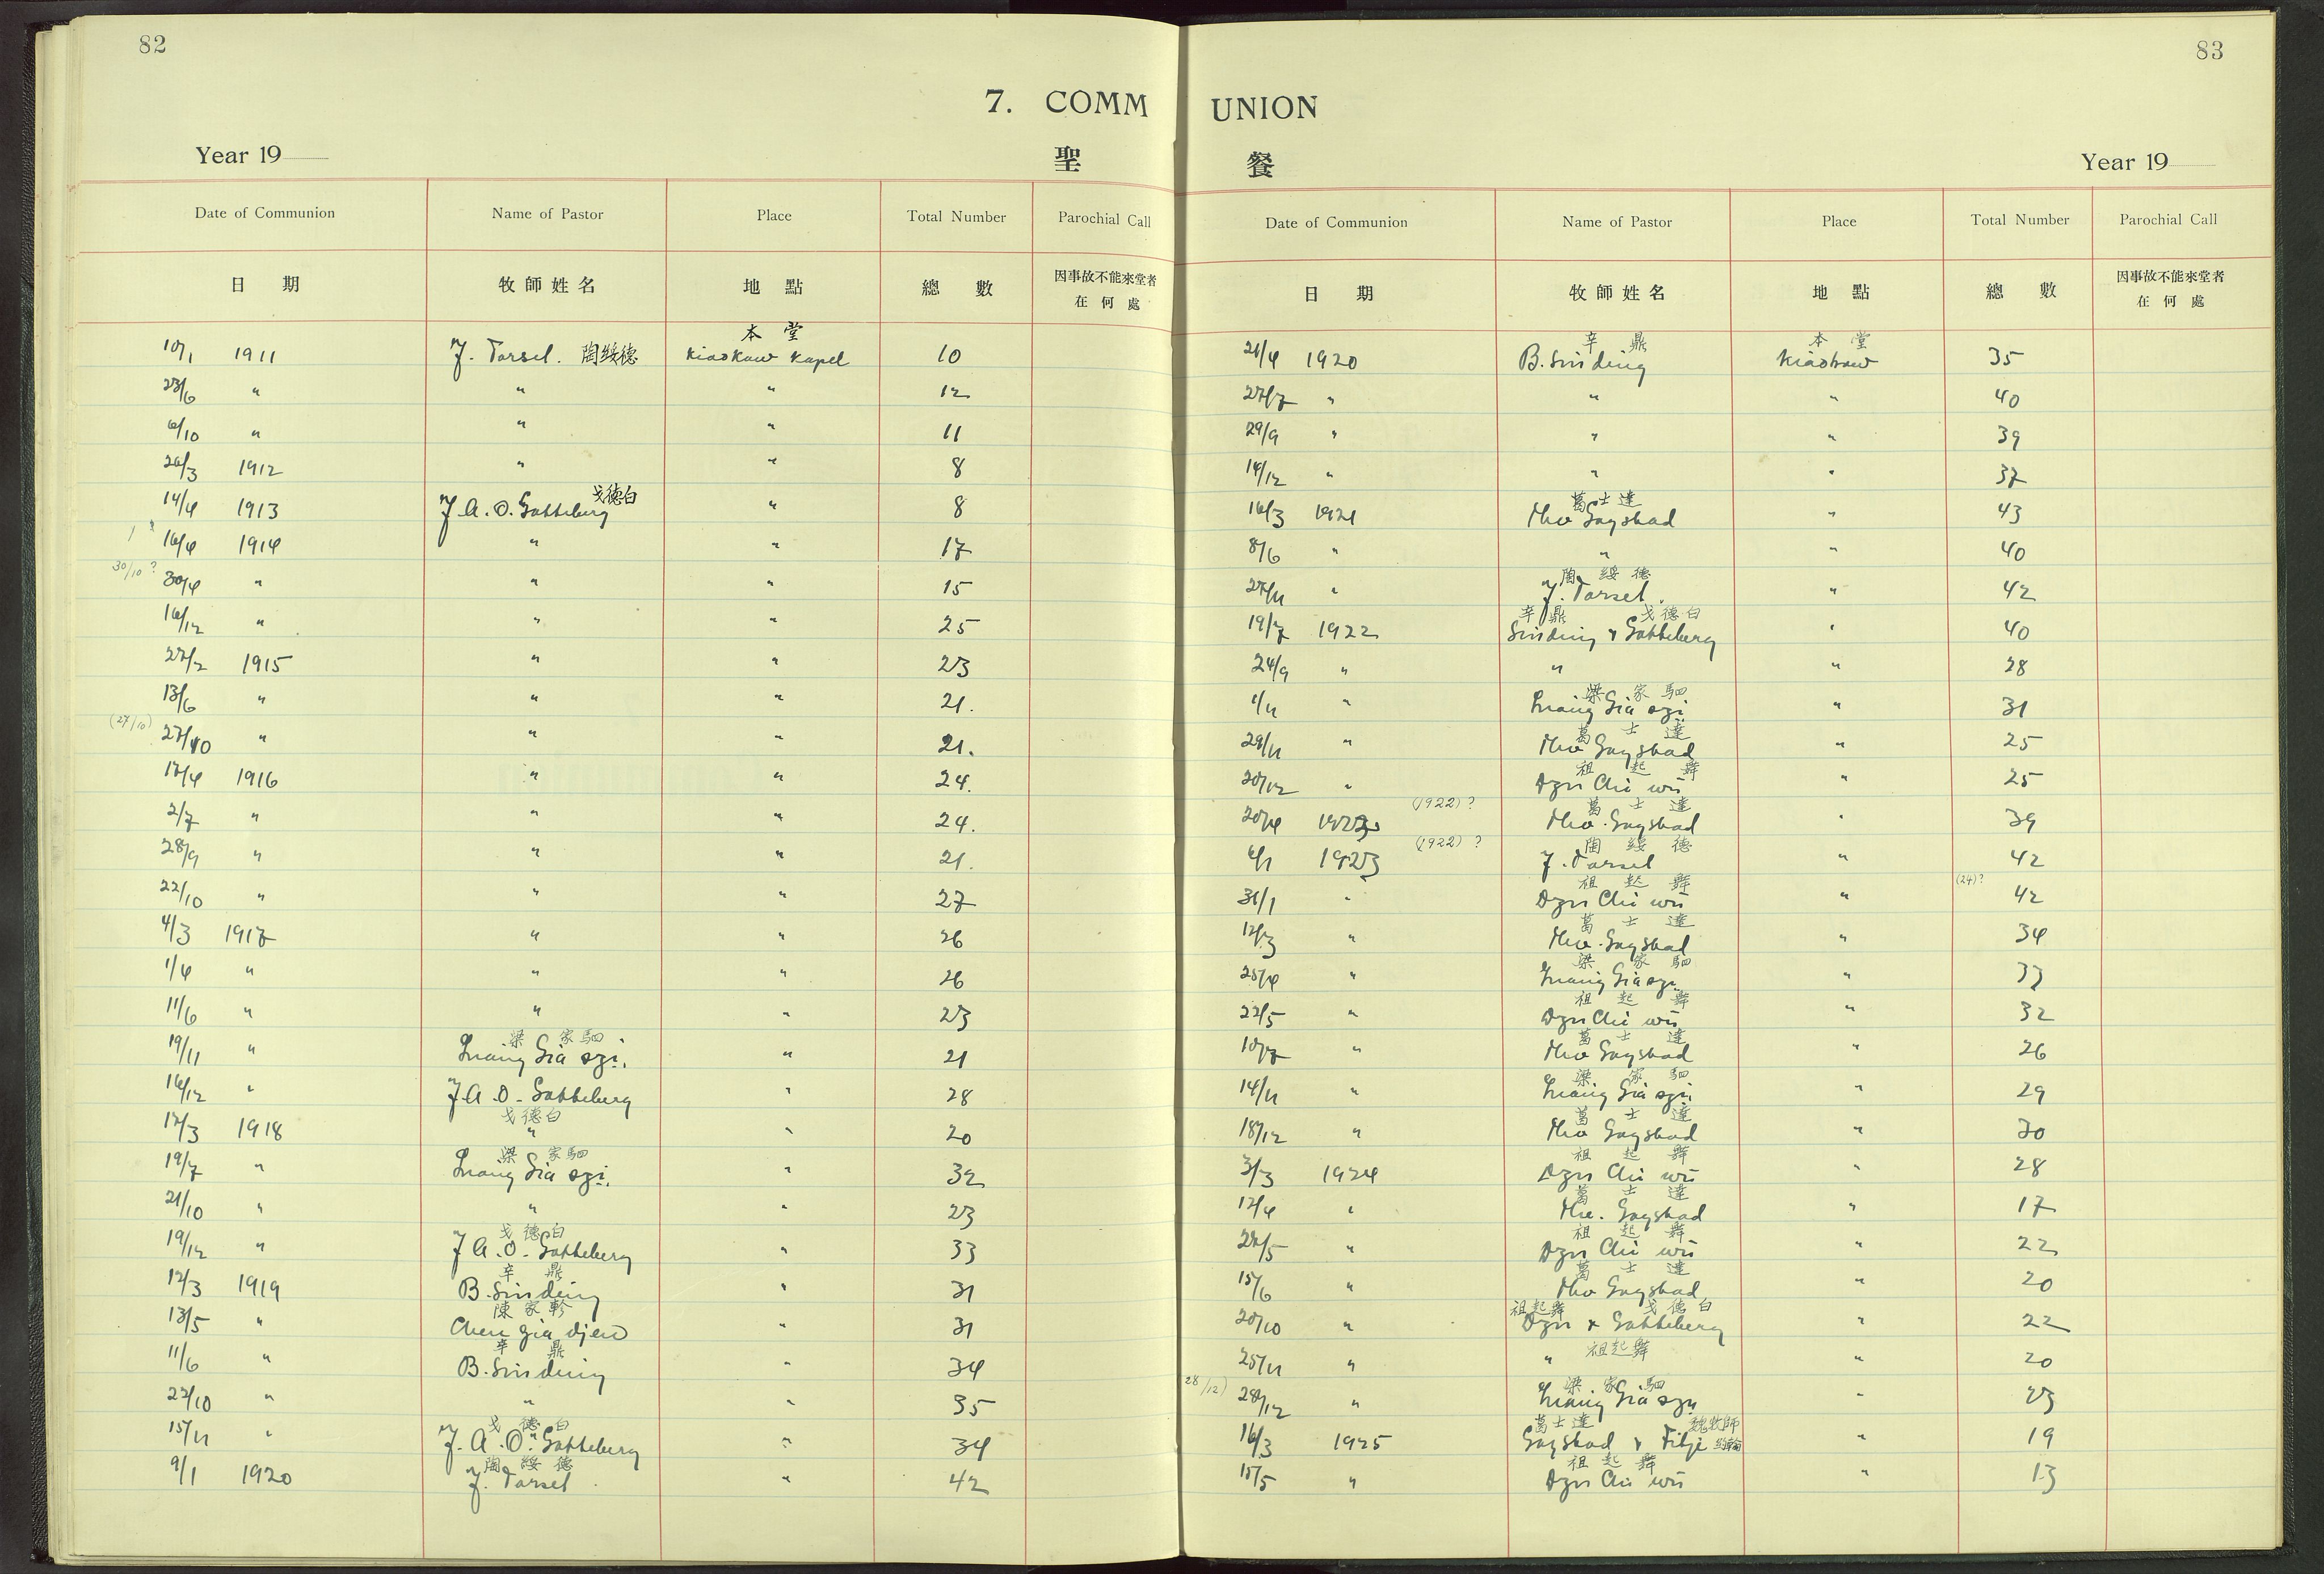 82
7. COMM
Year 19
聖
Date of Communion Name of Pastor Place Total Number Parochial Call
日 期 牧師姓名 地 點 總 數 因事故不能來堂者
在 何 處
本 堂
10/1 1911 J. Torset. 陶綏德 Kiaokaw Kapel 10
23/6 " " " 12
6/10 " " " 11
26/3 1912 " " 8
戈德白
14/4 1913 J.A.O. Gotteberg " 8
16/4 1914 " " 17
30/10 ?
30/4 " " " 15
16/12 " " " 25
27/2 1915 " " 23
13/6 " " " 21.
(27/10)
27/10 " " " 21.
17/4 1916 " " 24.
2/7 " " " 24.
28/9 " " " 21.
22/10 " " " 27
4/3 1917 " " 26
1/4 " " " 26
11/6 " " " 23
梁 家駟
19/11 " Liang Gia szi. " 21
16/12 " J.A.O. Gotteberg " 28
戈德白
12/3 1918 " " 20
梁 家駟
19/7 " Liang Gia szi. " 32
21/10 " " " 23
戈德白
19/12 " J.A.O. Gotteberg " 33
辛 鼎
12/3 1919 B. Sinding " 31
陳家軫
13/5 " Chen gia djen " 31
辛 鼎
11/6 " B. Sinding " 34
22/10 " " " 35
戈德白
15/11 " J.A.O. Gotteberg " 34
陶綏德
9/1 1920 J. Torset " 42
83
UNION
餐
Year 19
Date of Communion Name of Pastor Place Total Number Parochial Call
日 期 牧師姓名 地 點 總 數 因事故不能來堂者
在 何 處
辛 鼎 本 堂
21/4 1920 B. Sinding Kiaokaw 35
27/7 " " " 40
29/9 " " " 39
14/12 " " " 37
葛士達
16/3 1921 Tho Gogstad " 43
8/6 " " " 40
陶綏德
27/11 " J. Torset. " 42
辛鼎 戈德白
19/7 1922 Sinding & Gotteberg " 40
24/9 " " " 28
梁家駟
1/11 " Liang Gia szi " 31
葛士達
29/11 " Tho Gogstad " 25
祖起舞
20/12 " Dzu Chi wu " 25
(1922) ? 葛士達
20/4 1923 Tho. Gogstad " 39
(1922) ? 陶綏德
6/1 1923 J. Torset " 42
祖起舞 (24)?
31/1 " Dzu Chi wu " 42
葛士達
12/3 " Tho. Gogstad " 34
梁家駟
25/4 " Liang Gia szi " 33
祖起舞
22/5 " Dzu Chi wu " 32
葛士達
10/7 " Tho Gogstad " 26
梁家駟
14/11 " Liang Gia szi " 29
葛士達
18/12 " Tho Gogstad " 30
祖起舞
3/3 1924 Dzu Chi wu " 28
葛士達
12/4 " Tho. Gogstad " 17
祖起舞
22/5 " Dzu Chi wu " 22
葛士達
15/6 " Tho Gogstad " 20
祖起舞 戈德白
20/10 " Dzu & Gotteberg " 22
祖起舞
25/11 " " " 20
(28/12) 梁家駟
28/12 " Liang Gia szi " 23
葛士達 魏牧師
16/3 1925 Gogstad & Tilje 約翰 " 19
祖起舞
15/5 " Dzu Chi wu " 13